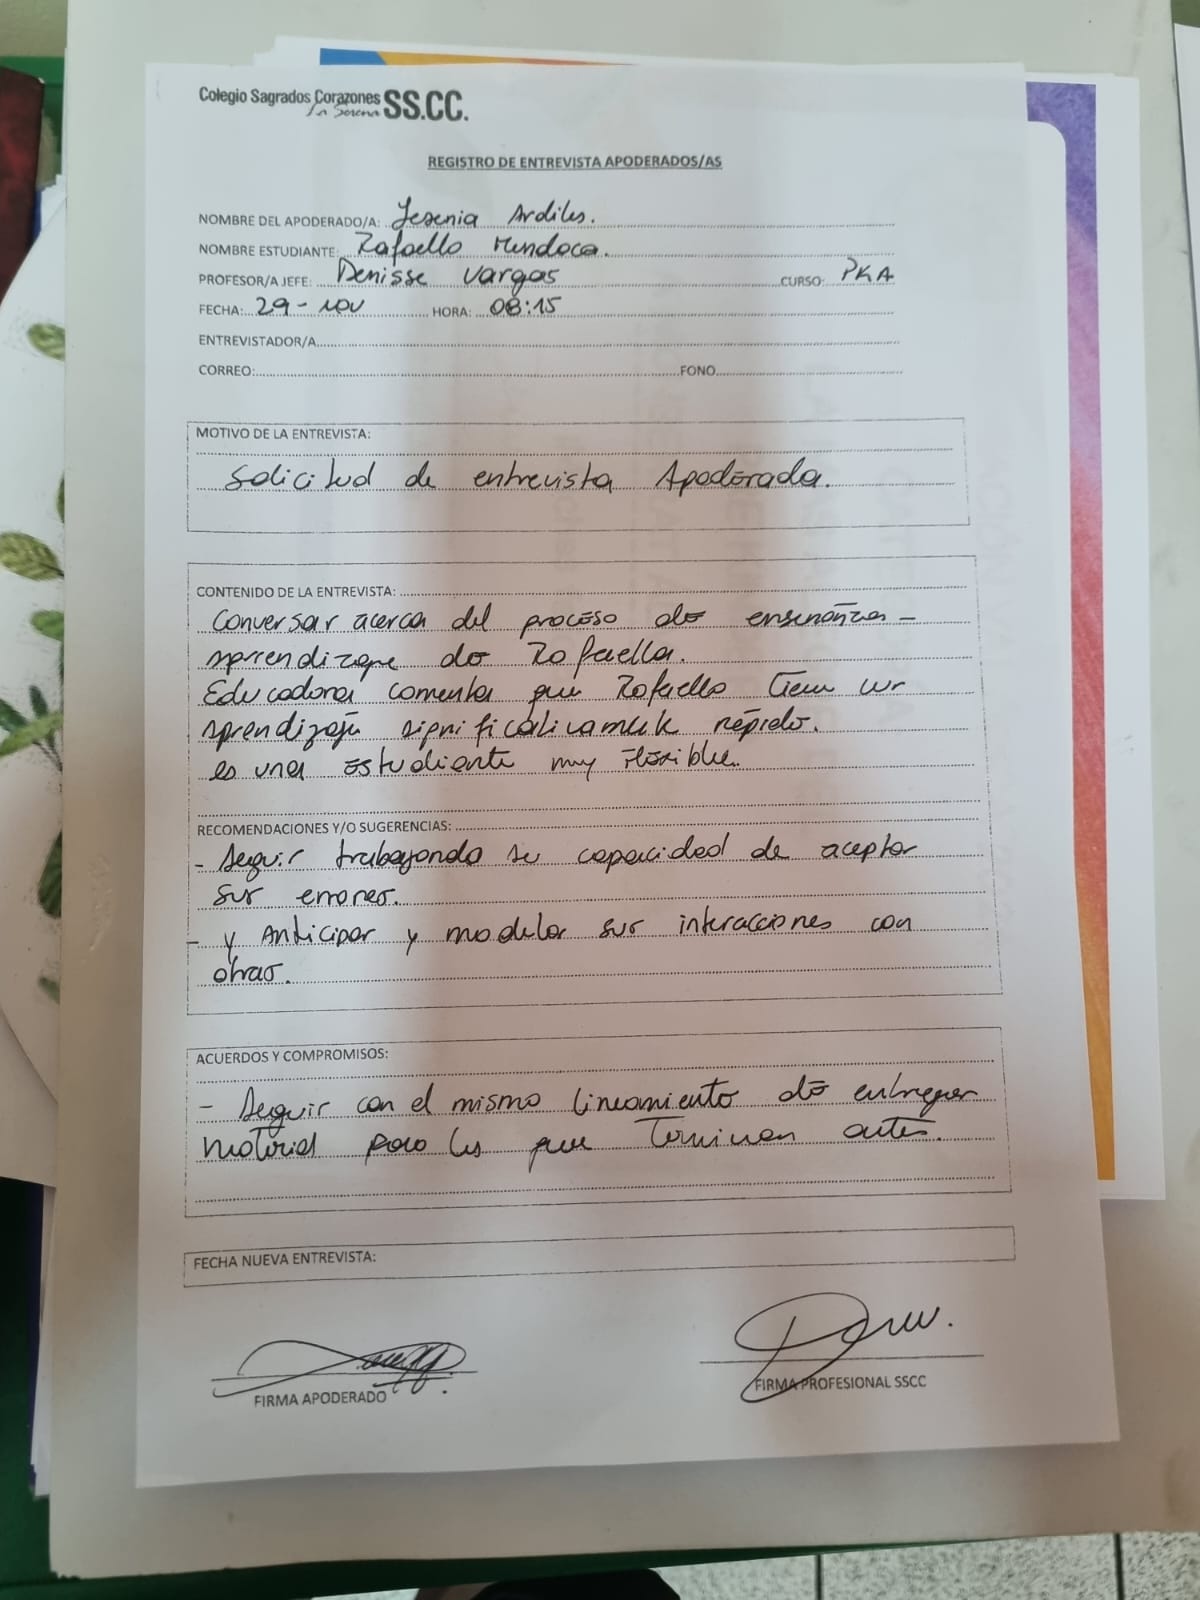 Colegio Sagrados Corazones SS.CC.
La Serena
REGISTRO DE ENTREVISTA APODERADOS/AS
NOMBRE DEL APODERADO/A: Jesenia Ardiles.
NOMBRE ESTUDIANTE: Rafaella Mendoca.
PROFESOR/A JEFE: Denisse Vargas CURSO: PKA
FECHA: 29-nov HORA: 08:15
ENTREVISTADOR/A
CORREO: FONO
MOTIVO DE LA ENTREVISTA:
Solicitud de entrevista Apoderada.
CONTENIDO DE LA ENTREVISTA:
Conversar acerca del proceso de enseñanza-
aprendizaje de Rafaella.
Educadora comenta que Rafaella tiene un
aprendizaje significativamente rápido.
es una estudiante muy flexible.
RECOMENDACIONES Y/O SUGERENCIAS:
- Seguir trabajando su capacidad de aceptar
sus errores.
- y Anticipar y modelar sus interacciones con
otras.
ACUERDOS Y COMPROMISOS:
- Seguir con el mismo lineamiento de entregar
material para los que terminen antes.
FECHA NUEVA ENTREVISTA:
FIRMA APODERADO
FIRMA PROFESIONAL SSCC